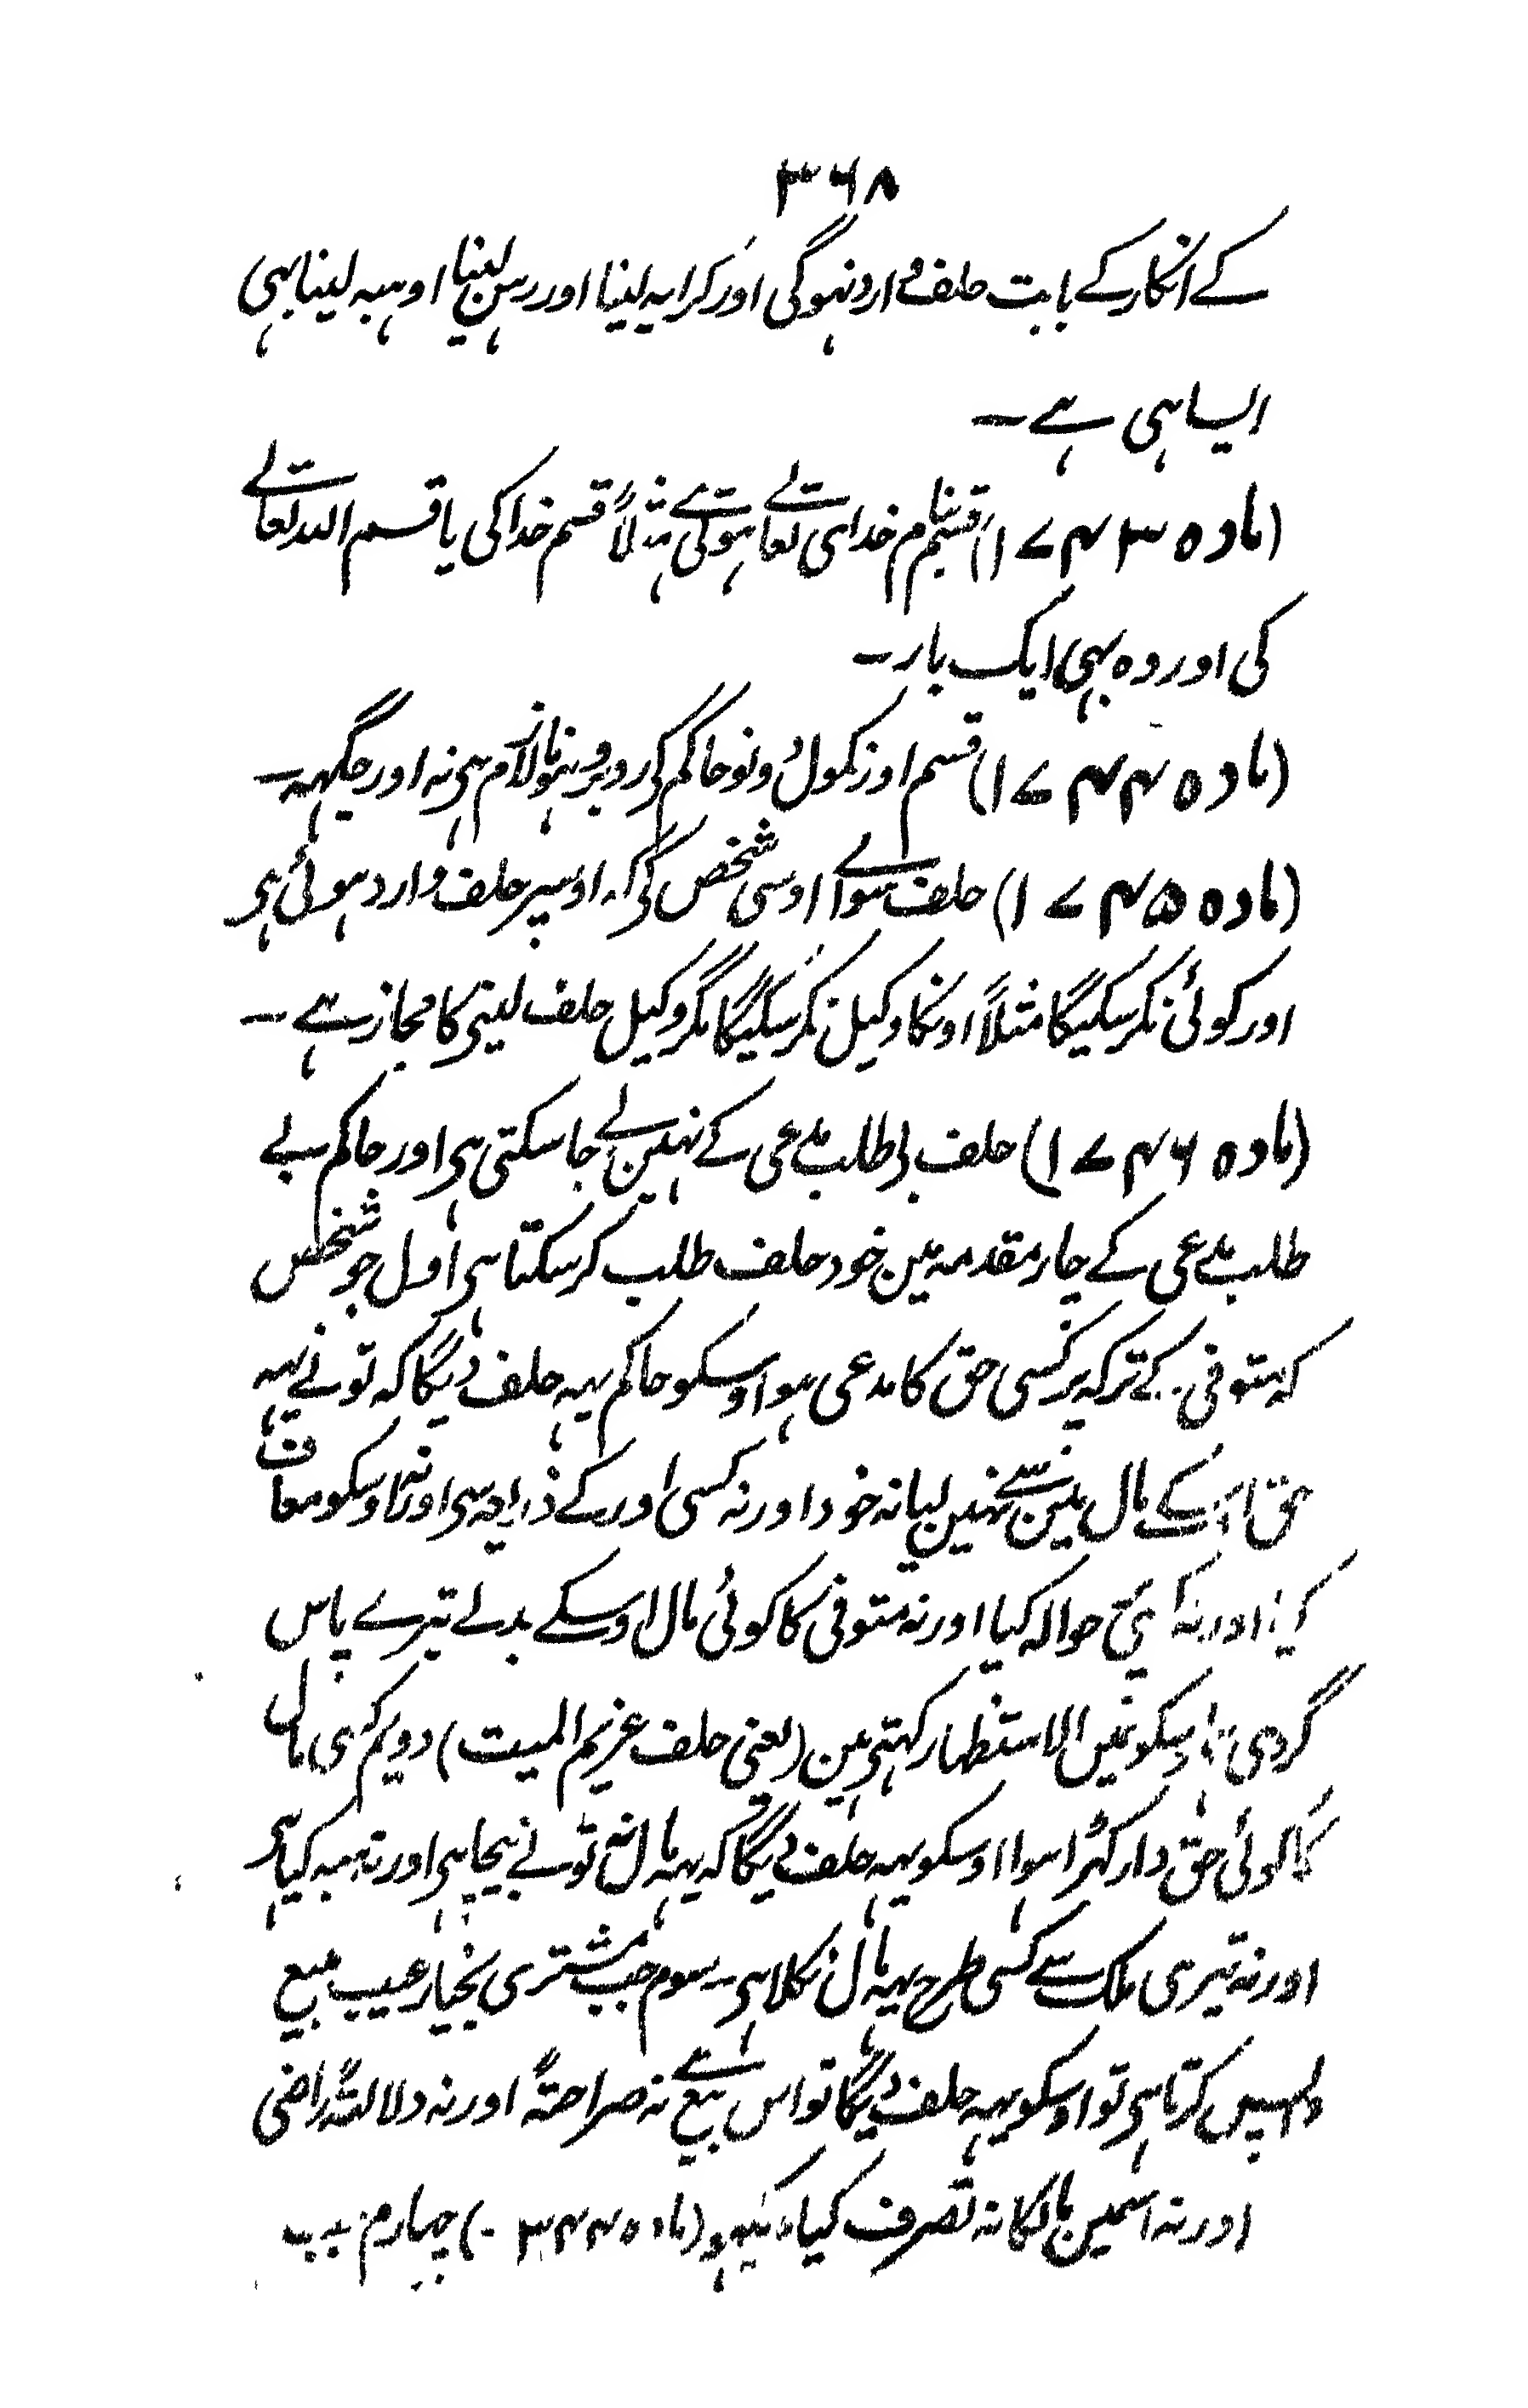 ۳۶۸
کے انکار کے بابت حلف وارد نہوگی اور کرایہ لینا اور رہن لینا اوہبہ لینا بہی
ایسا ہی ہے ۔
(مادہ ۱۷۴۳) قسم بنام خدای تعالے ہوتی ہے مثلاً قسم خدا کی یا قسم اللہ تعالے
کی اور وہ بہی ایک بار ۔
(مادہ ۱۷۴۴) قسم اور نکول دونو حاکم کی روبرو ہونا لازم ہی نہ اور جگہہ ۔
(مادہ ۱۷۴۵) حلف سوائے اوسی شخص کی کہ اوسپر حلف وارد ہوئی ہی
اور کوئی نکر سکیگا مثلاً اوسکا وکیل نکر سکیگا مگر وکیل حلف لینی کا مجاز ہے ۔
(مادہ ۱۷۴۶) حلف بی طلب مدعی کے نہین لے جا سکتی ہی اور حاکم بے
طلب مدعی کے چار مقدمہ مین خود حلف طلب کر سکتا ہی اول جو شخص
کہ متوفی کے ترکہ پر کسی حق کا مدعی ہوا اوسکو حاکم یہہ حلف دیگا کہ تونی یہہ
حق اسکے مال مین سے نہین لیا نہ خود اور نہ کسی اور کے ذریعہ سی اور نہ اوسکو معاف
کیا اور نہ حوالہ کیا اور نہ متوفی کا کوئی مال اوسکے بدلے تیرے پاس
گرو ہی اوسکو یمین الاستظہار کہتی ہین (یعنی حلف غریم المیت) دویم کسی مال
کا کوئی حق دار کہڑا ہوا اوسکو یہہ حلف دیگا کہ یہہ مال نہ تونے بیچا ہی اور نہ ہبہ کیا ہی
اور نہ تیری ملک سے کسی طرح یہہ مال نکلا ہی ۔ سوم جب مشتری بخیار عیب مبیع
واپس کرتا ہی تو اوسکو یہہ حلف دیگا تو اس بیع سے نہ صراحتہً اور نہ دلالتہً راضی
اور نہ اسمین مالکانہ تصرف کیا (مادہ ۳۴۴) چہارم جب